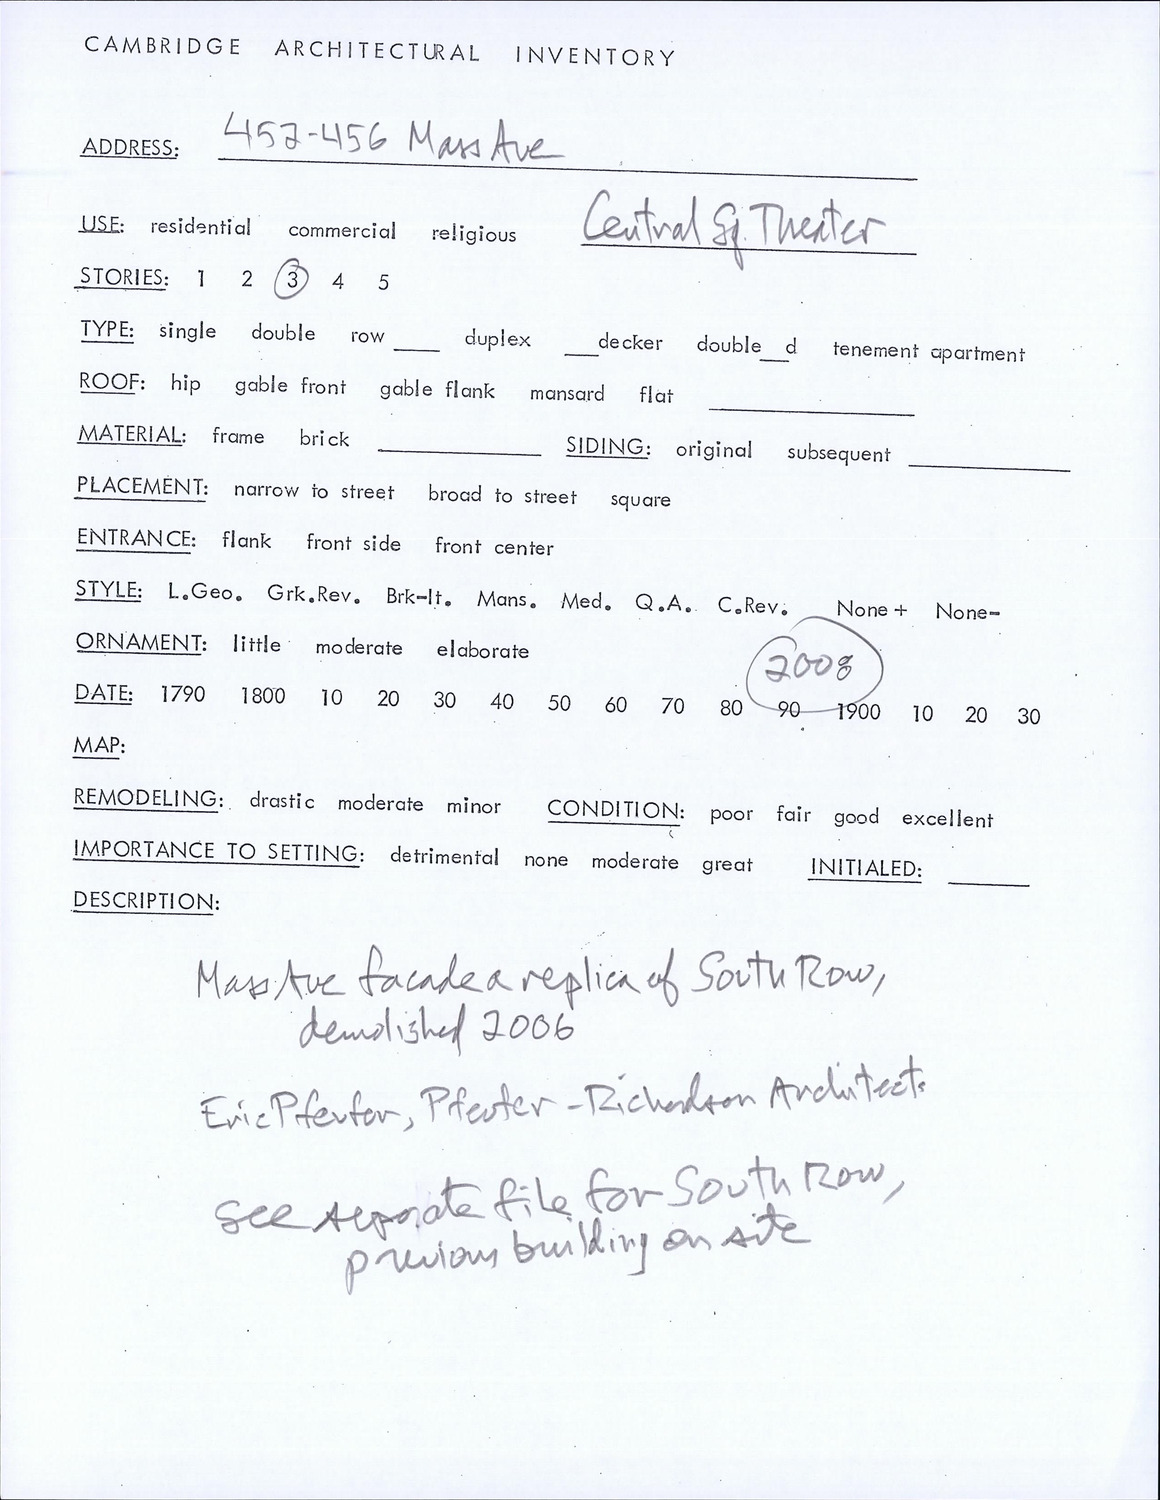 CAMBRIDGE ARCHITECTURAL INVENTORY
ADDRESS: 452-456 Mass Ave
USE: residential commercial religious Central Sq. Theater
STORIES: 1 2 3 4 5
TYPE: single double row ___ duplex ___decker double__d tenement apartment
ROOF: hip gable front gable flank mansard flat
MATERIAL: frame brick SIDING: original subsequent
PLACEMENT: narrow to street broad to street square
ENTRANCE: flank front side front center
STYLE: L.Geo. Grk.Rev. Brk-It. Mans. Med. Q.A. C.Rev. None+ None-
ORNAMENT: little moderate elaborate
2008
DATE: 1790 1800 10 20 30 40 50 60 70 80 90 1900 10 20 30
MAP:
REMODELING: drastic moderate minor CONDITION: poor fair good excellent
IMPORTANCE TO SETTING: detrimental none moderate great INITIALED:
DESCRIPTION:
Mass Ave facade a replica of South Row,
demolished 2006
Eric Pfeufer, Pfeufer-Richardson Architects
See separate file for South Row,
previous building on site